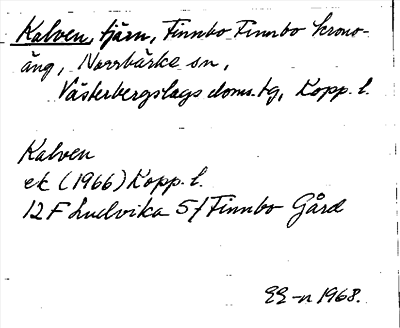 Kalven, tjärn, Finnbo-Finnbo krono-
äng, Norrbärke sn,
Västerbergslags doms. tg, Kopp. l.
Kalven
ek (1966) Kopp. l.
12 F Ludvika 5f Finnbo Gård
1968.